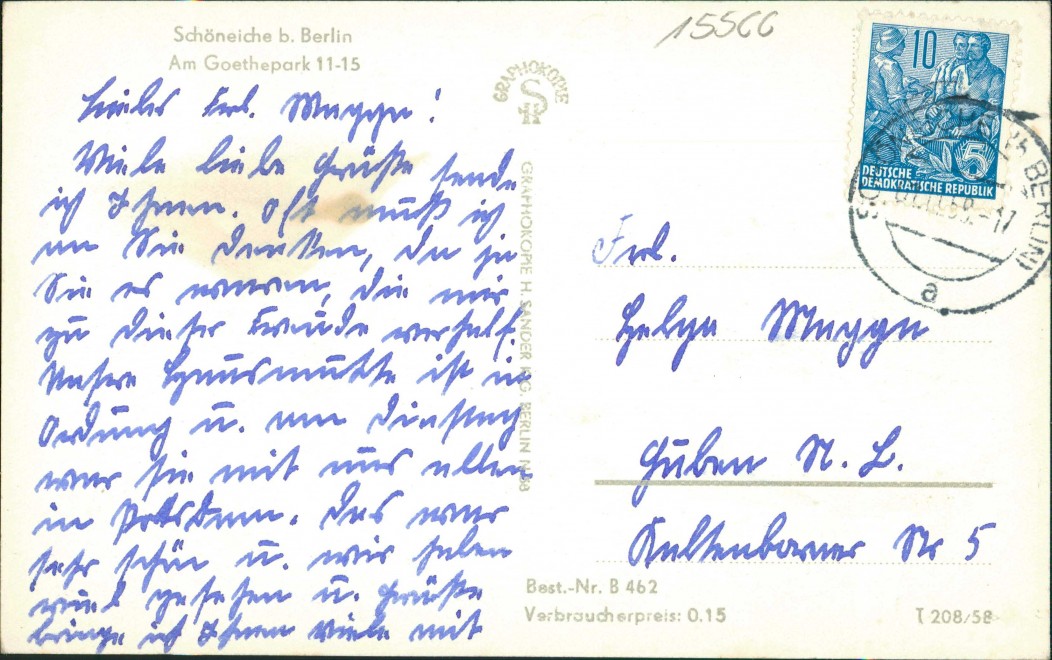 Schöneiche b. Berlin
Am Goethepark 11-15
Liebes Frl. Magga!
Viele liebe Grüße sende
ich Ihnen. Oft muß ich
an Sie denken, da ja
Sie es waren, die mir
zu dieser Freude verhalf.
Unsere Hausmutte ist in
Ordung u. am Dienstag
war sie mit uns allen
in Potsdam. Das war
sehr schön u. wir haben
viel gesehen u. Grüße
bringe ich Ihnen viele mit
15566
GRAPHOKOPIE
GRAPHOKOPIE H. SANDER K.G. BERLIN N 58
10
5
DEUTSCHE
DEMOKRATISCHE REPUBLIK
BERLIN)
-17
a
Frl.
Helga Magga
Guben N. L.
Kaltenborner Str 5
Best.-Nr. B 462
Verbraucherpreis: 0.15
T 208/58